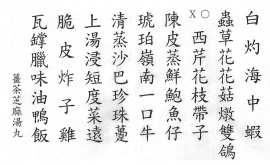 白灼海中蝦
蟲草花花菇燉雙鴿
X○西芹花枝帶子
陳皮蒸鮮鮑魚仔
琥珀嶺南一口牛
清蒸沙巴珍珠躉
上湯浸短度菜遠
脆皮炸子雞
瓦罉臘味油鴨飯
薑茶芝麻湯丸